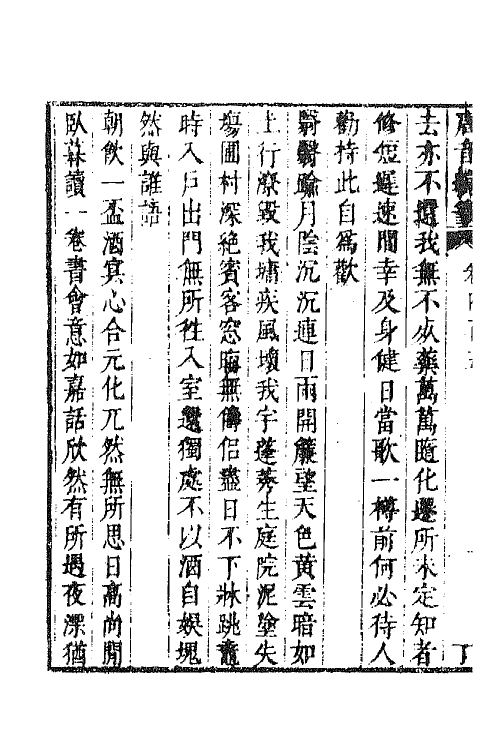 去亦不還我無不死藥萬萬隨化遷所未定知者
修短遲速間幸及身健日當歌一樽前何必待人
勸持此自為歡
翳翳踰月陰沉沉連日雨開簾望天色黃雲暗如
土行潦毀我墉疾風壞我宇蓬莠生庭院泥塗失
場圃村深絕賓客窓晦無儔侶盡日不下牀跳鼃
時入戶出門無所往入室還獨處不以酒自娛塊
然與誰語
朝飲一盃酒冥心合元化兀然無所思日高尚閒
臥暮讀一卷書會意如嘉話欣然有所遇夜深猶